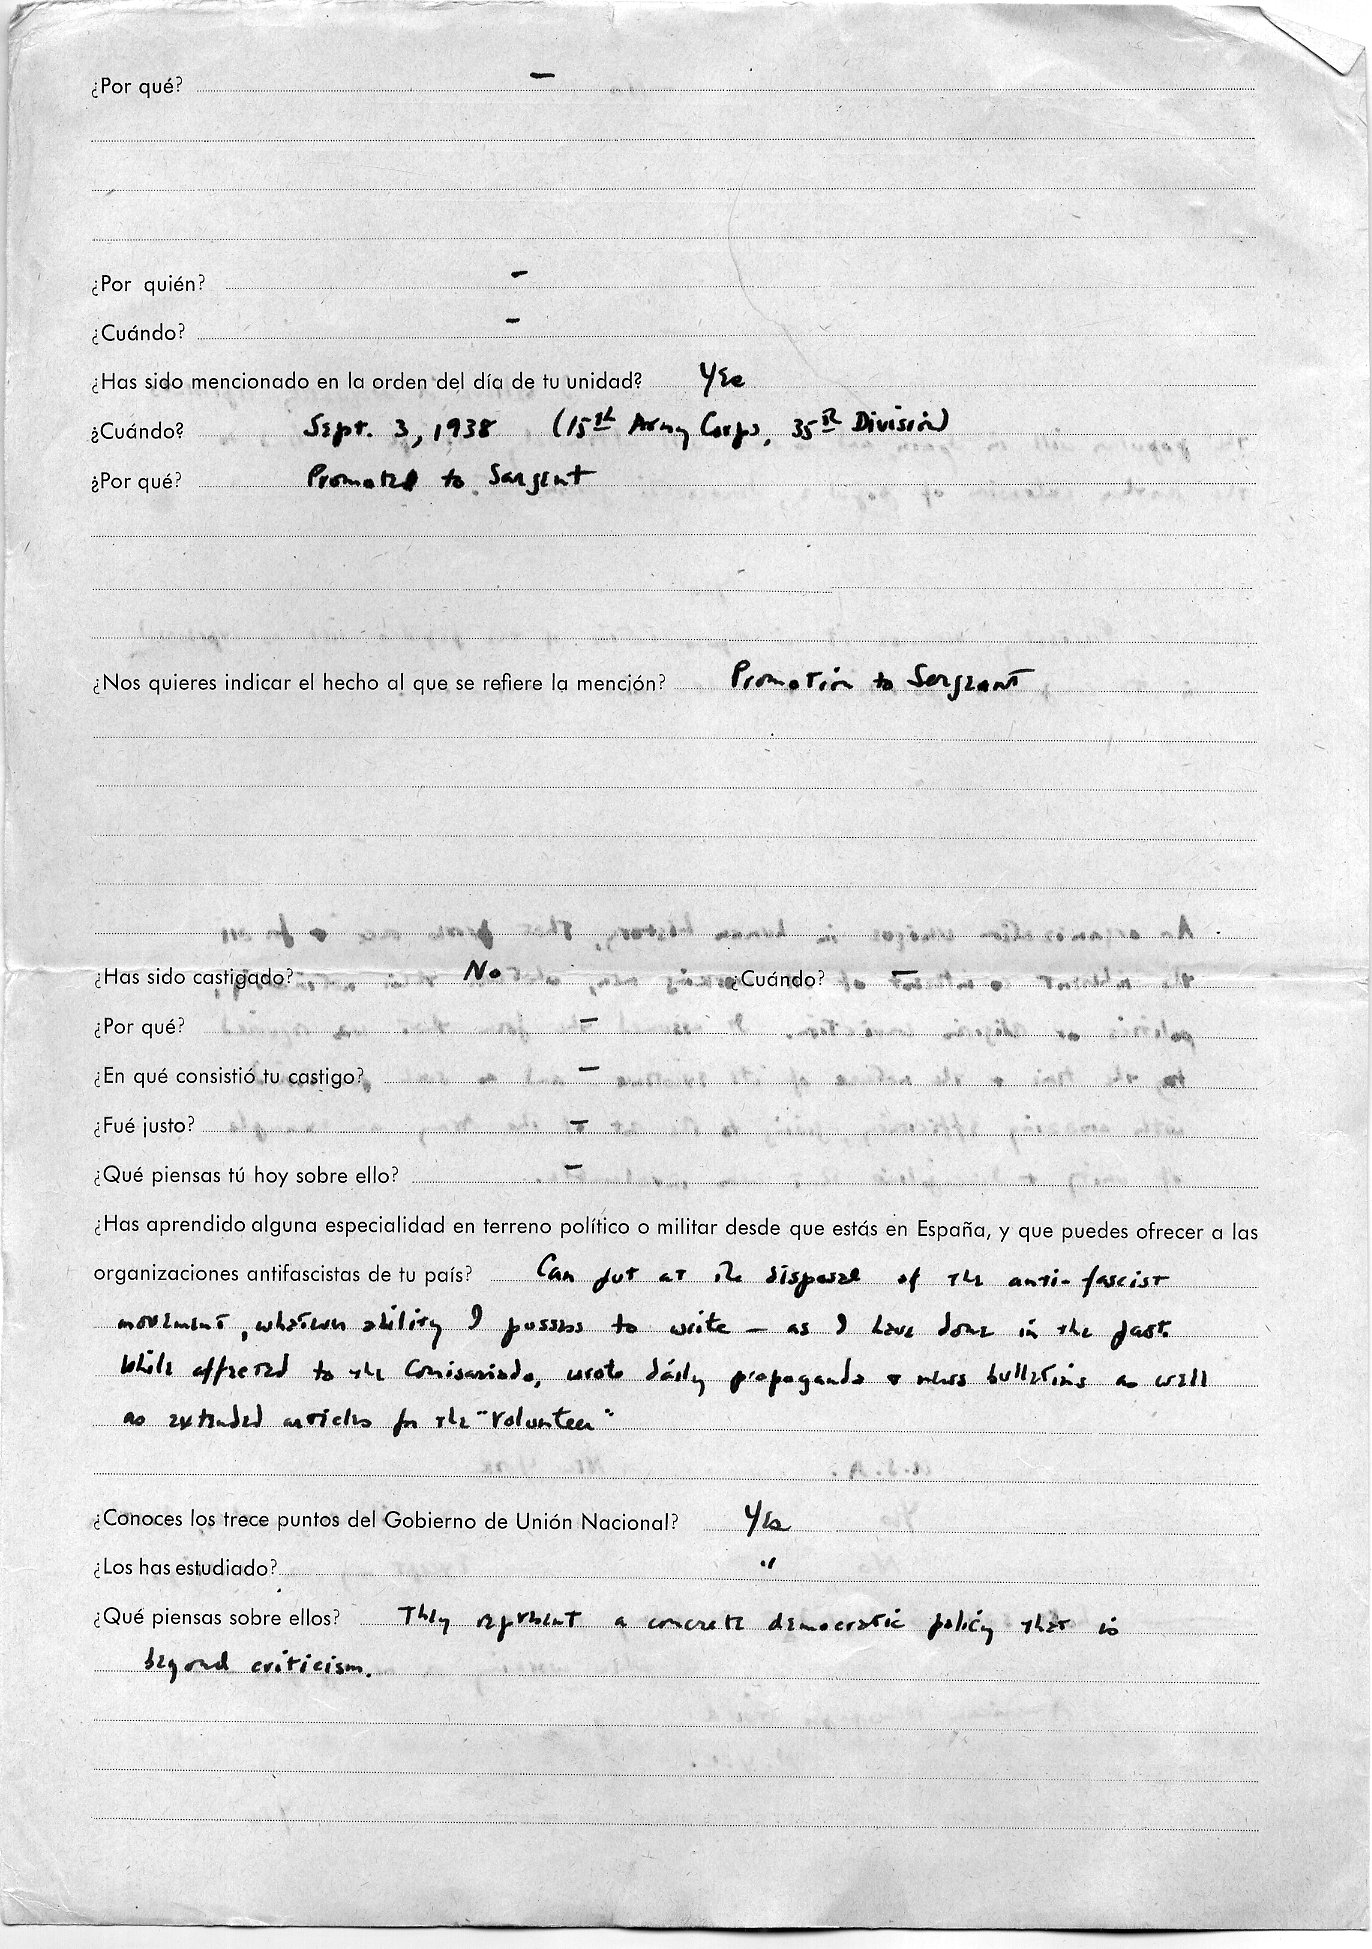 ¿Por qué? —
¿Por quién? —
¿Cuándo? —
¿Has sido mencionado en la orden del día de tu unidad? Yes
¿Cuándo? Sept. 3, 1938 (15th Army Corps, 35th Division)
¿Por qué? Promoted to Sargent
¿Nos quieres indicar el hecho al que se refiere la mención? Promotion to Sergeant
¿Has sido castigado? No ¿Cuándo? —
¿Por qué? —
¿En qué consistió tu castigo? —
¿Fué justo? —
¿Qué piensas tú hoy sobre ello? —
¿Has aprendido alguna especialidad en terreno político o militar desde que estás en España, y que puedes ofrecer a las
organizaciones antifascistas de tu país? Can put at the disposal of the anti-fascist
movement, whatever ability I possess to write — as I have done in the past.
While affected to the Comisariado, wrote daily propaganda & news bulletins as well
as extended articles for the "Volunteer"
¿Conoces los trece puntos del Gobierno de Unión Nacional? Yes
¿Los has estudiado? "
¿Qué piensas sobre ellos? They represent a concrete democratic policy that is
beyond criticism.